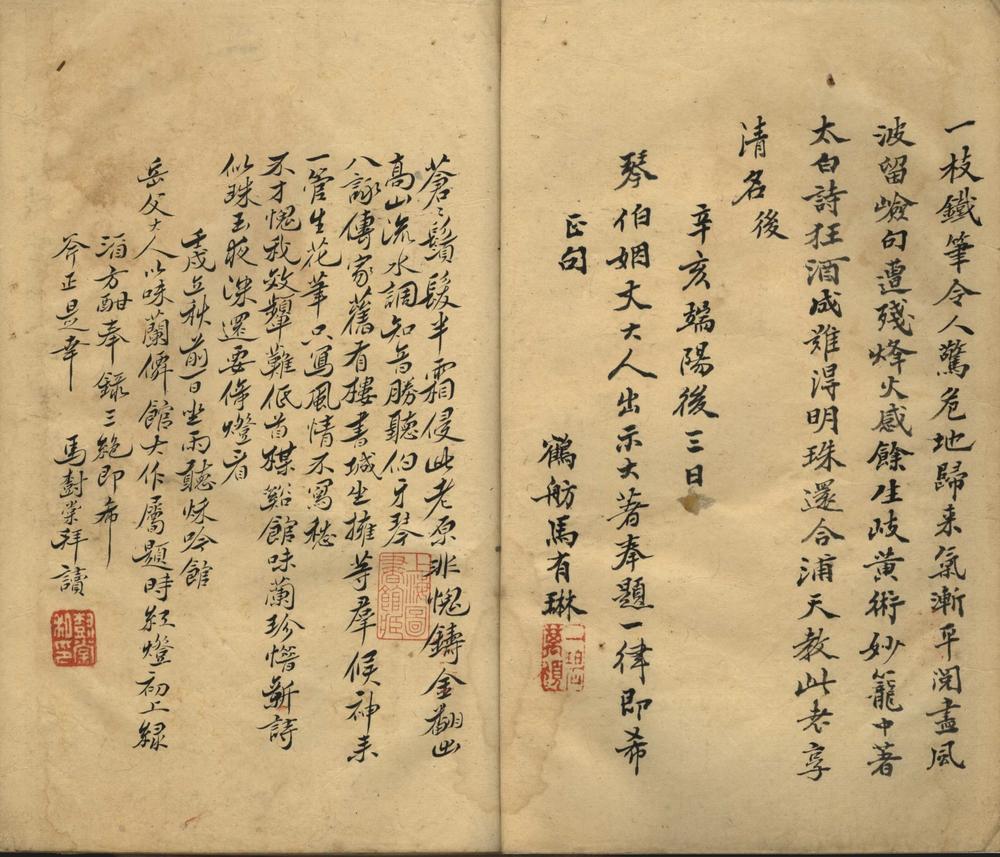 一枝鐵筆令人驚危地歸来氣漸平閱盡風
波留嶮句遭殘烽火感餘生歧黄術妙籠中著
太白詩狂酒成難得明珠還合浦天教此老享
清名後
辛亥端陽後三日
琴伯姻丈大人出示大著奉題一律即希
正句
鶴舫馬有琳
蒼〻鬚髮半霜侵此老原非愧鑄金翻出
高山流水調知音勝聽伯牙琴
八詠傳家舊有樓書城坐擁等羣候神来
一管生花筆只寫風情不寫愁
不才愧我效顰難低首楳谿館味蘭珍惜新詩
似珠玉夜深還要倚燈看
壬戌立秋前一日坐雨聽秌吟館
岳父大人以味蘭僲館大作屬題時紅燈初上綠
酒方酣奉錄三絶即希
斧正是幸
馬尌棠拜讀
上海圖書館藏